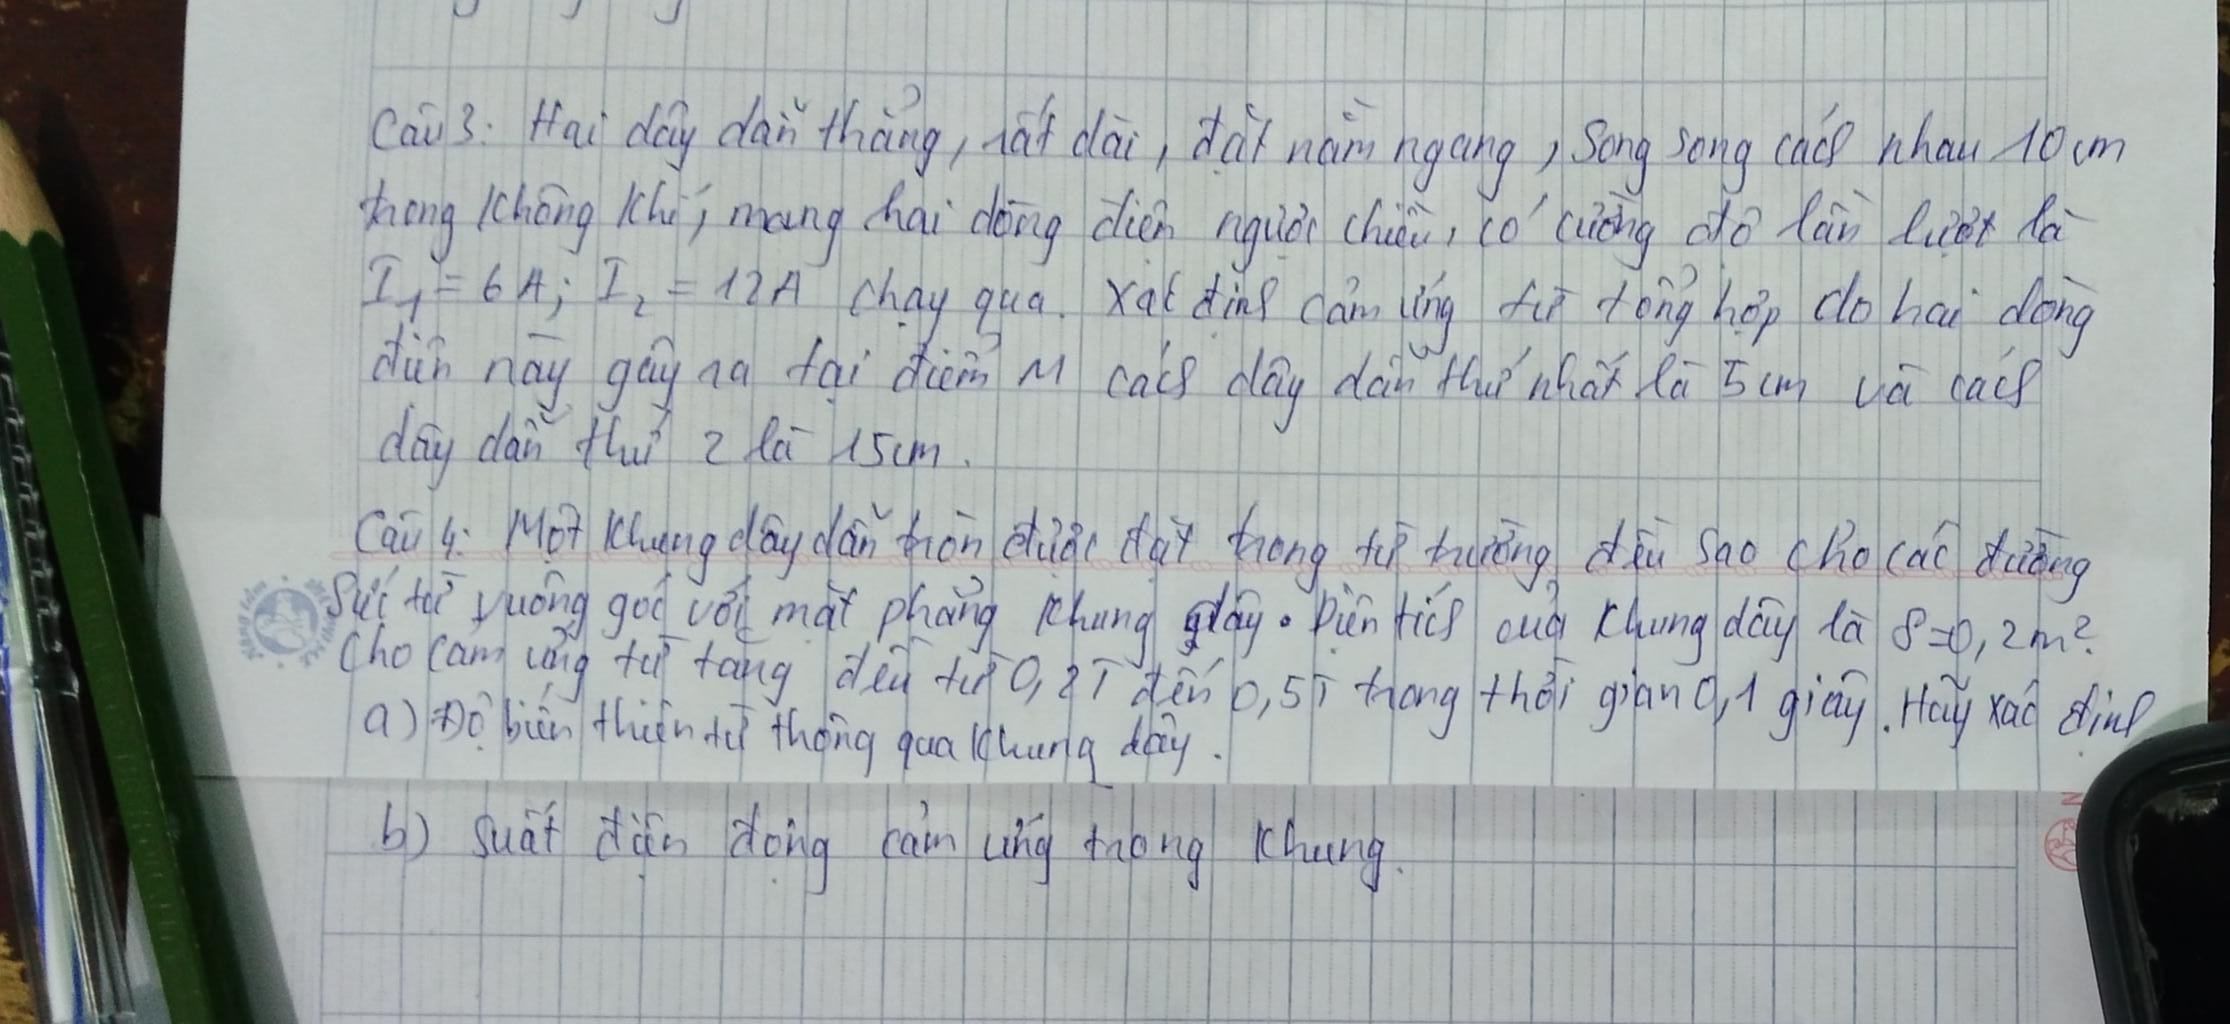 Câu 3: Hai dây dẫn thẳng, rất dài, đặt nằm ngang, song song cách nhau 10cm
trong không khí, mang hai dòng điện ngược chiều, có cường độ lần lượt là
I₁ = 6A; I₂ = 12A chạy qua. Xác định cảm ứng từ tổng hợp do hai dòng
điện này gây ra tại điểm M cách dây dẫn thứ nhất là 5cm và cách
dây dẫn thứ 2 là 15cm.
Câu 4: Một khung dây dẫn tròn được đặt trong từ trường đều sao cho các đường
sức từ vuông góc với mặt phẳng khung dây. Diện tích của khung dây là S=0,2m².
Cho cảm ứng từ tăng đều từ 0,2T đến 0,5T trong thời gian 0,1 giây. Hãy xác định
a) Độ biến thiên từ thông qua khung dây.
b) Suất điện động cảm ứng trong khung.